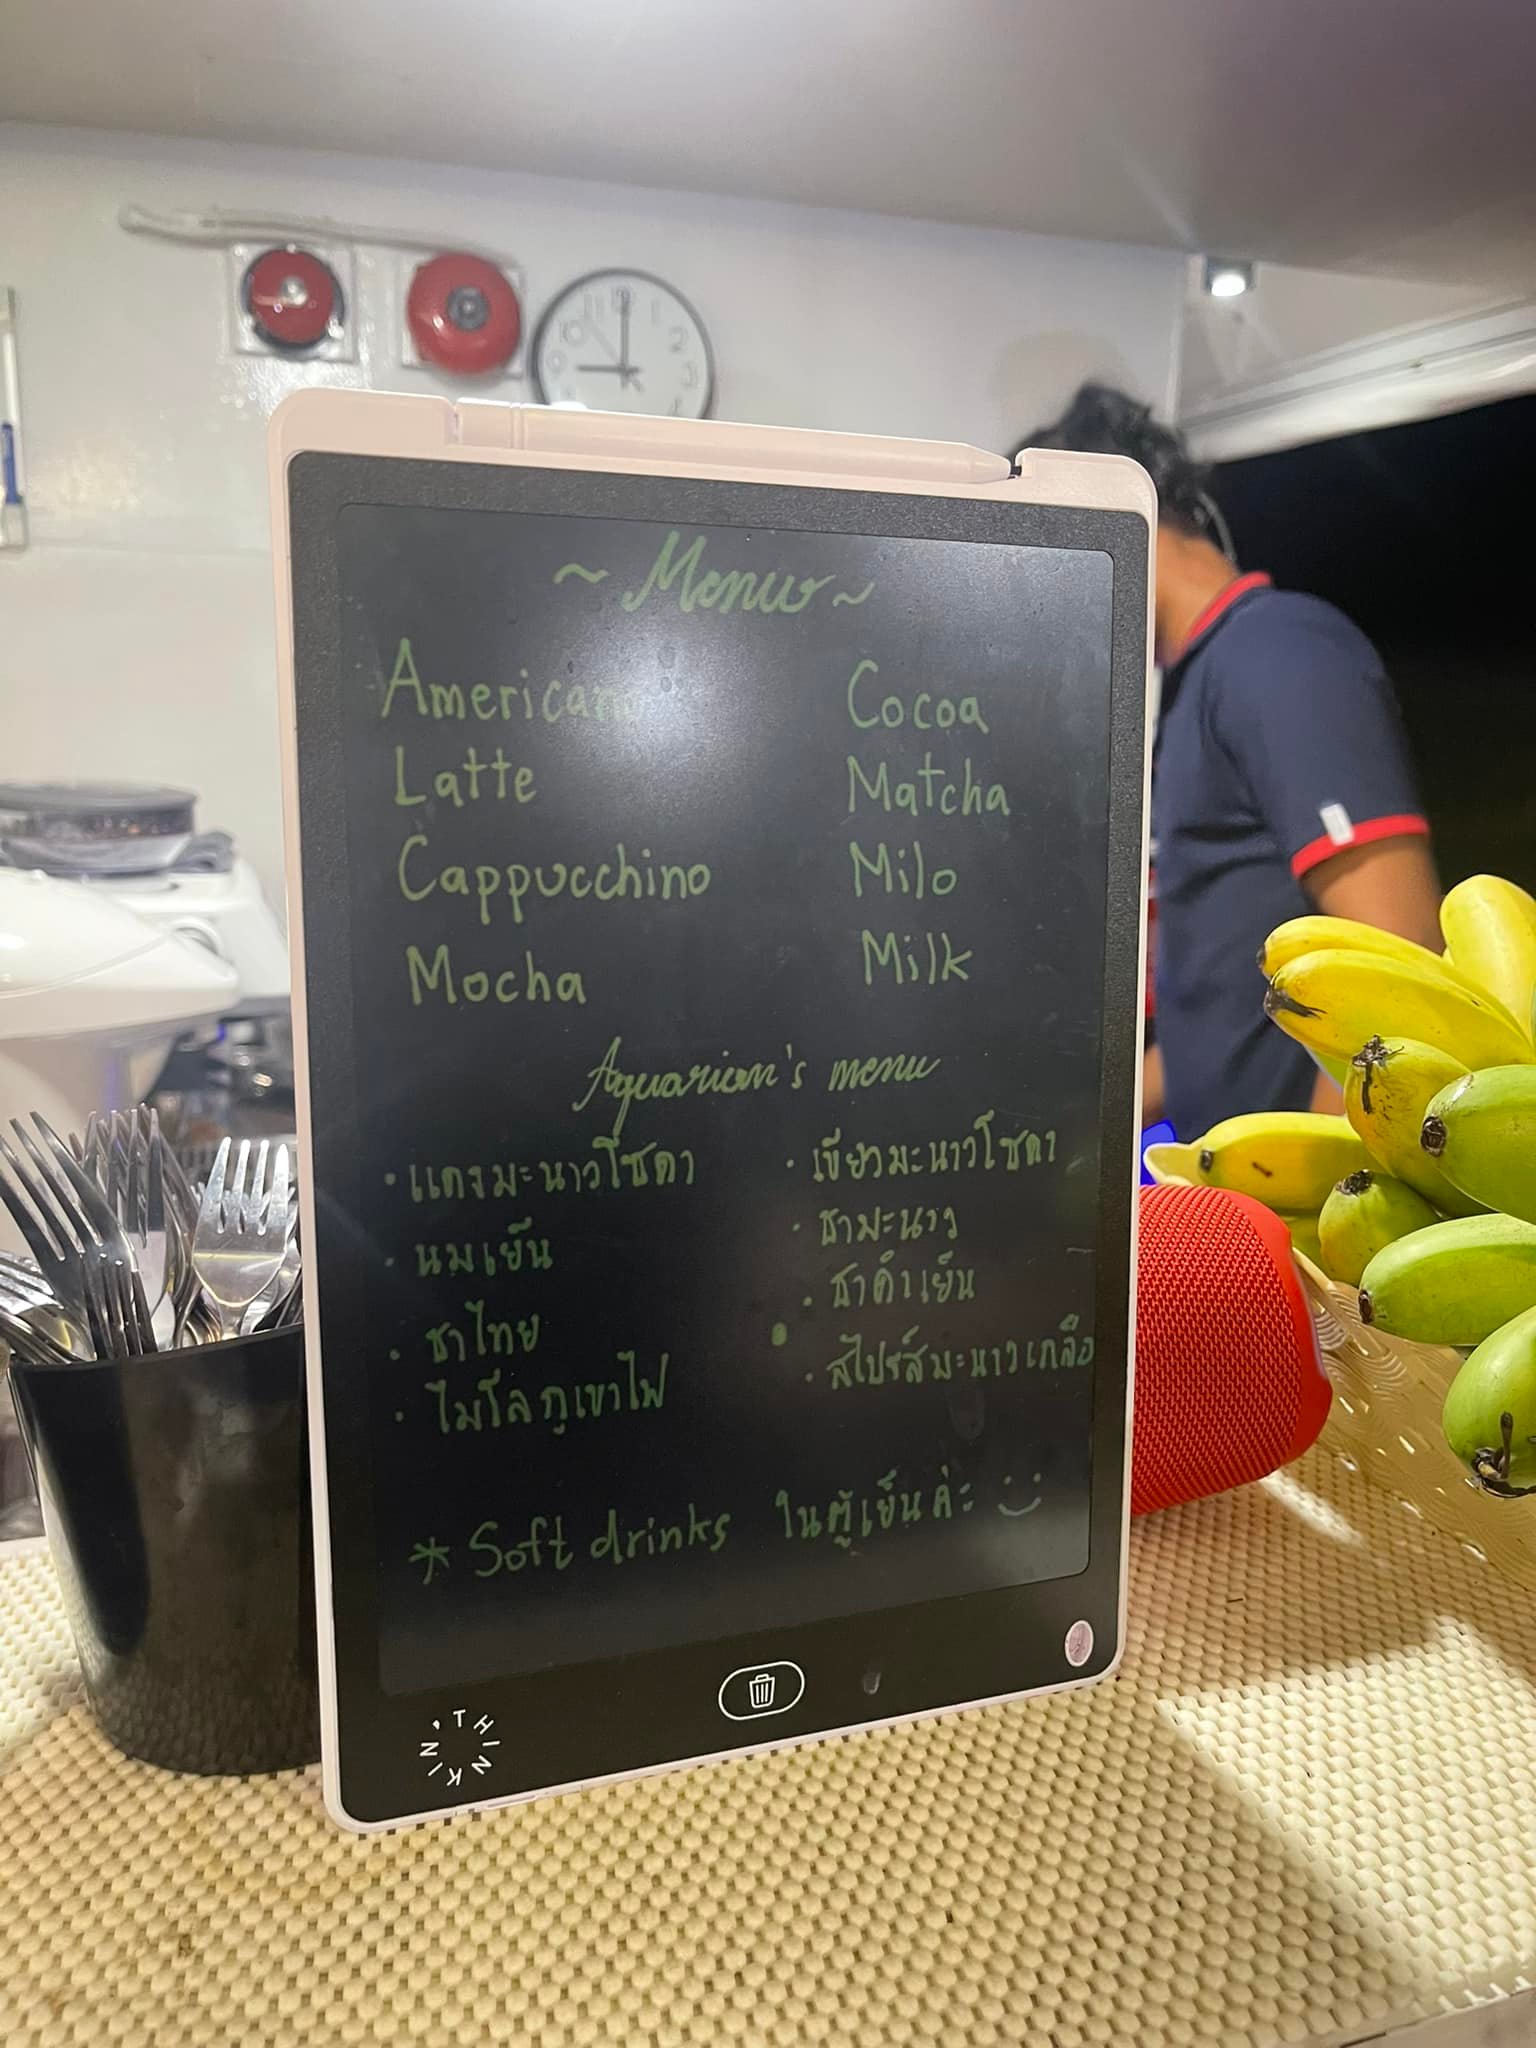 ~ Menu ~
Americano
Latte
Cappucchino
Mocha
Cocoa
Matcha
Milo
Milk
Aquarian's menu
· แดงมะนาวโซดา
· นมเย็น
· ชาไทย
· ไมโลภูเขาไฟ
· เขียวมะนาวโซดา
· ชามะนาว
· ชาดำเย็น
· สไปร์สมะนาวเกลือ
* Soft drinks ในตู้เย็นค่ะ
THINKIN'
11 12 1
10 2
3